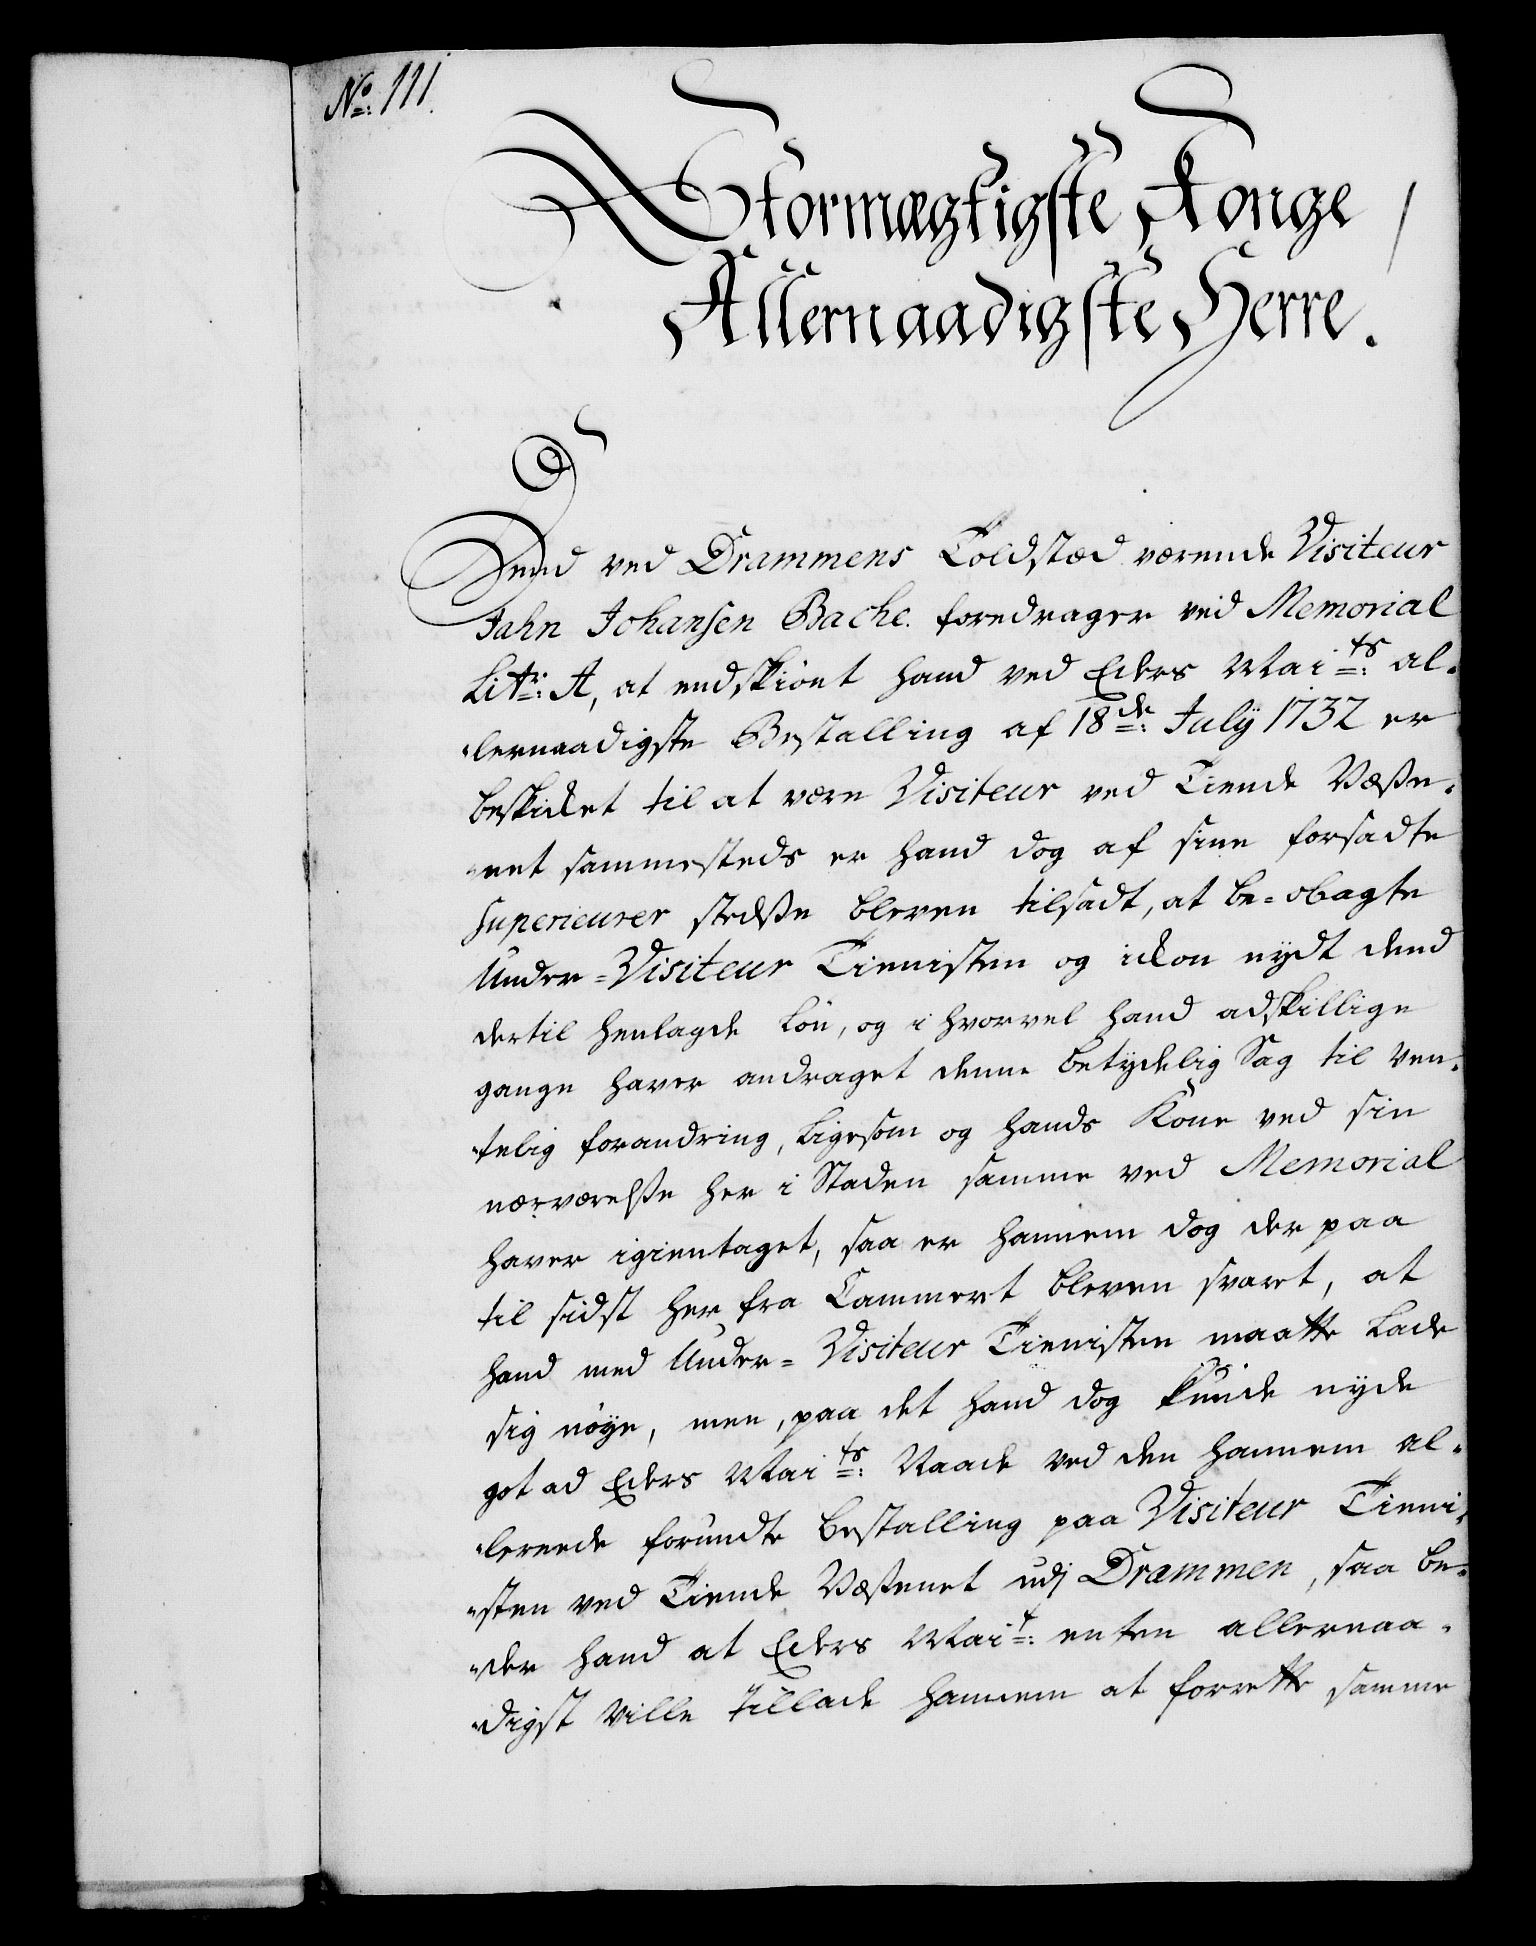 No: 111.
Stormægtigste Konge
Allernaadigste Herre.
Dend ved Drammens Toldstæd værende Visiteur
Jahn Johansen Bache. foredrager ved Memorial
Litr: A, at endskiönt hand ved Eders Maits: al-
lernaadigste Bestalling af 18de: Julÿ 1732 er
beskicket til at være Visiteur ved Tiende Væße-
net sammesteds er hand dog af sine forsadte
Superieurer stedße bleven tilsadt, at be-obagte
Under-Visiteur Tienisten og ickon nydt dend
dertil henlagde Lön, og i hvorvel hand adskillige
gange haver andraget denne betydelig Sag til Ven-
telig forandring, Ligesom og hands Kone ved sin
nærværelße her i Staden samme ved Memorial
haver igientaget, saa er hannem dog der paa
til sidst her fra Cammeret bleven svaret, at
hand med Under-Visiteur Tienisten maatte Lade
sig nöye, men, paa det hand dog kunde nyde
got ad Eders Maits: Naade ved den hannem al-
lerede forundte Bestalling paa Visiteur Tieni-
sten ved Tiende Væßenet udj Drammen, saa be-
der hand at Eders Mait: enten allernaa-
digst Ville tillade hannem at forrette samme